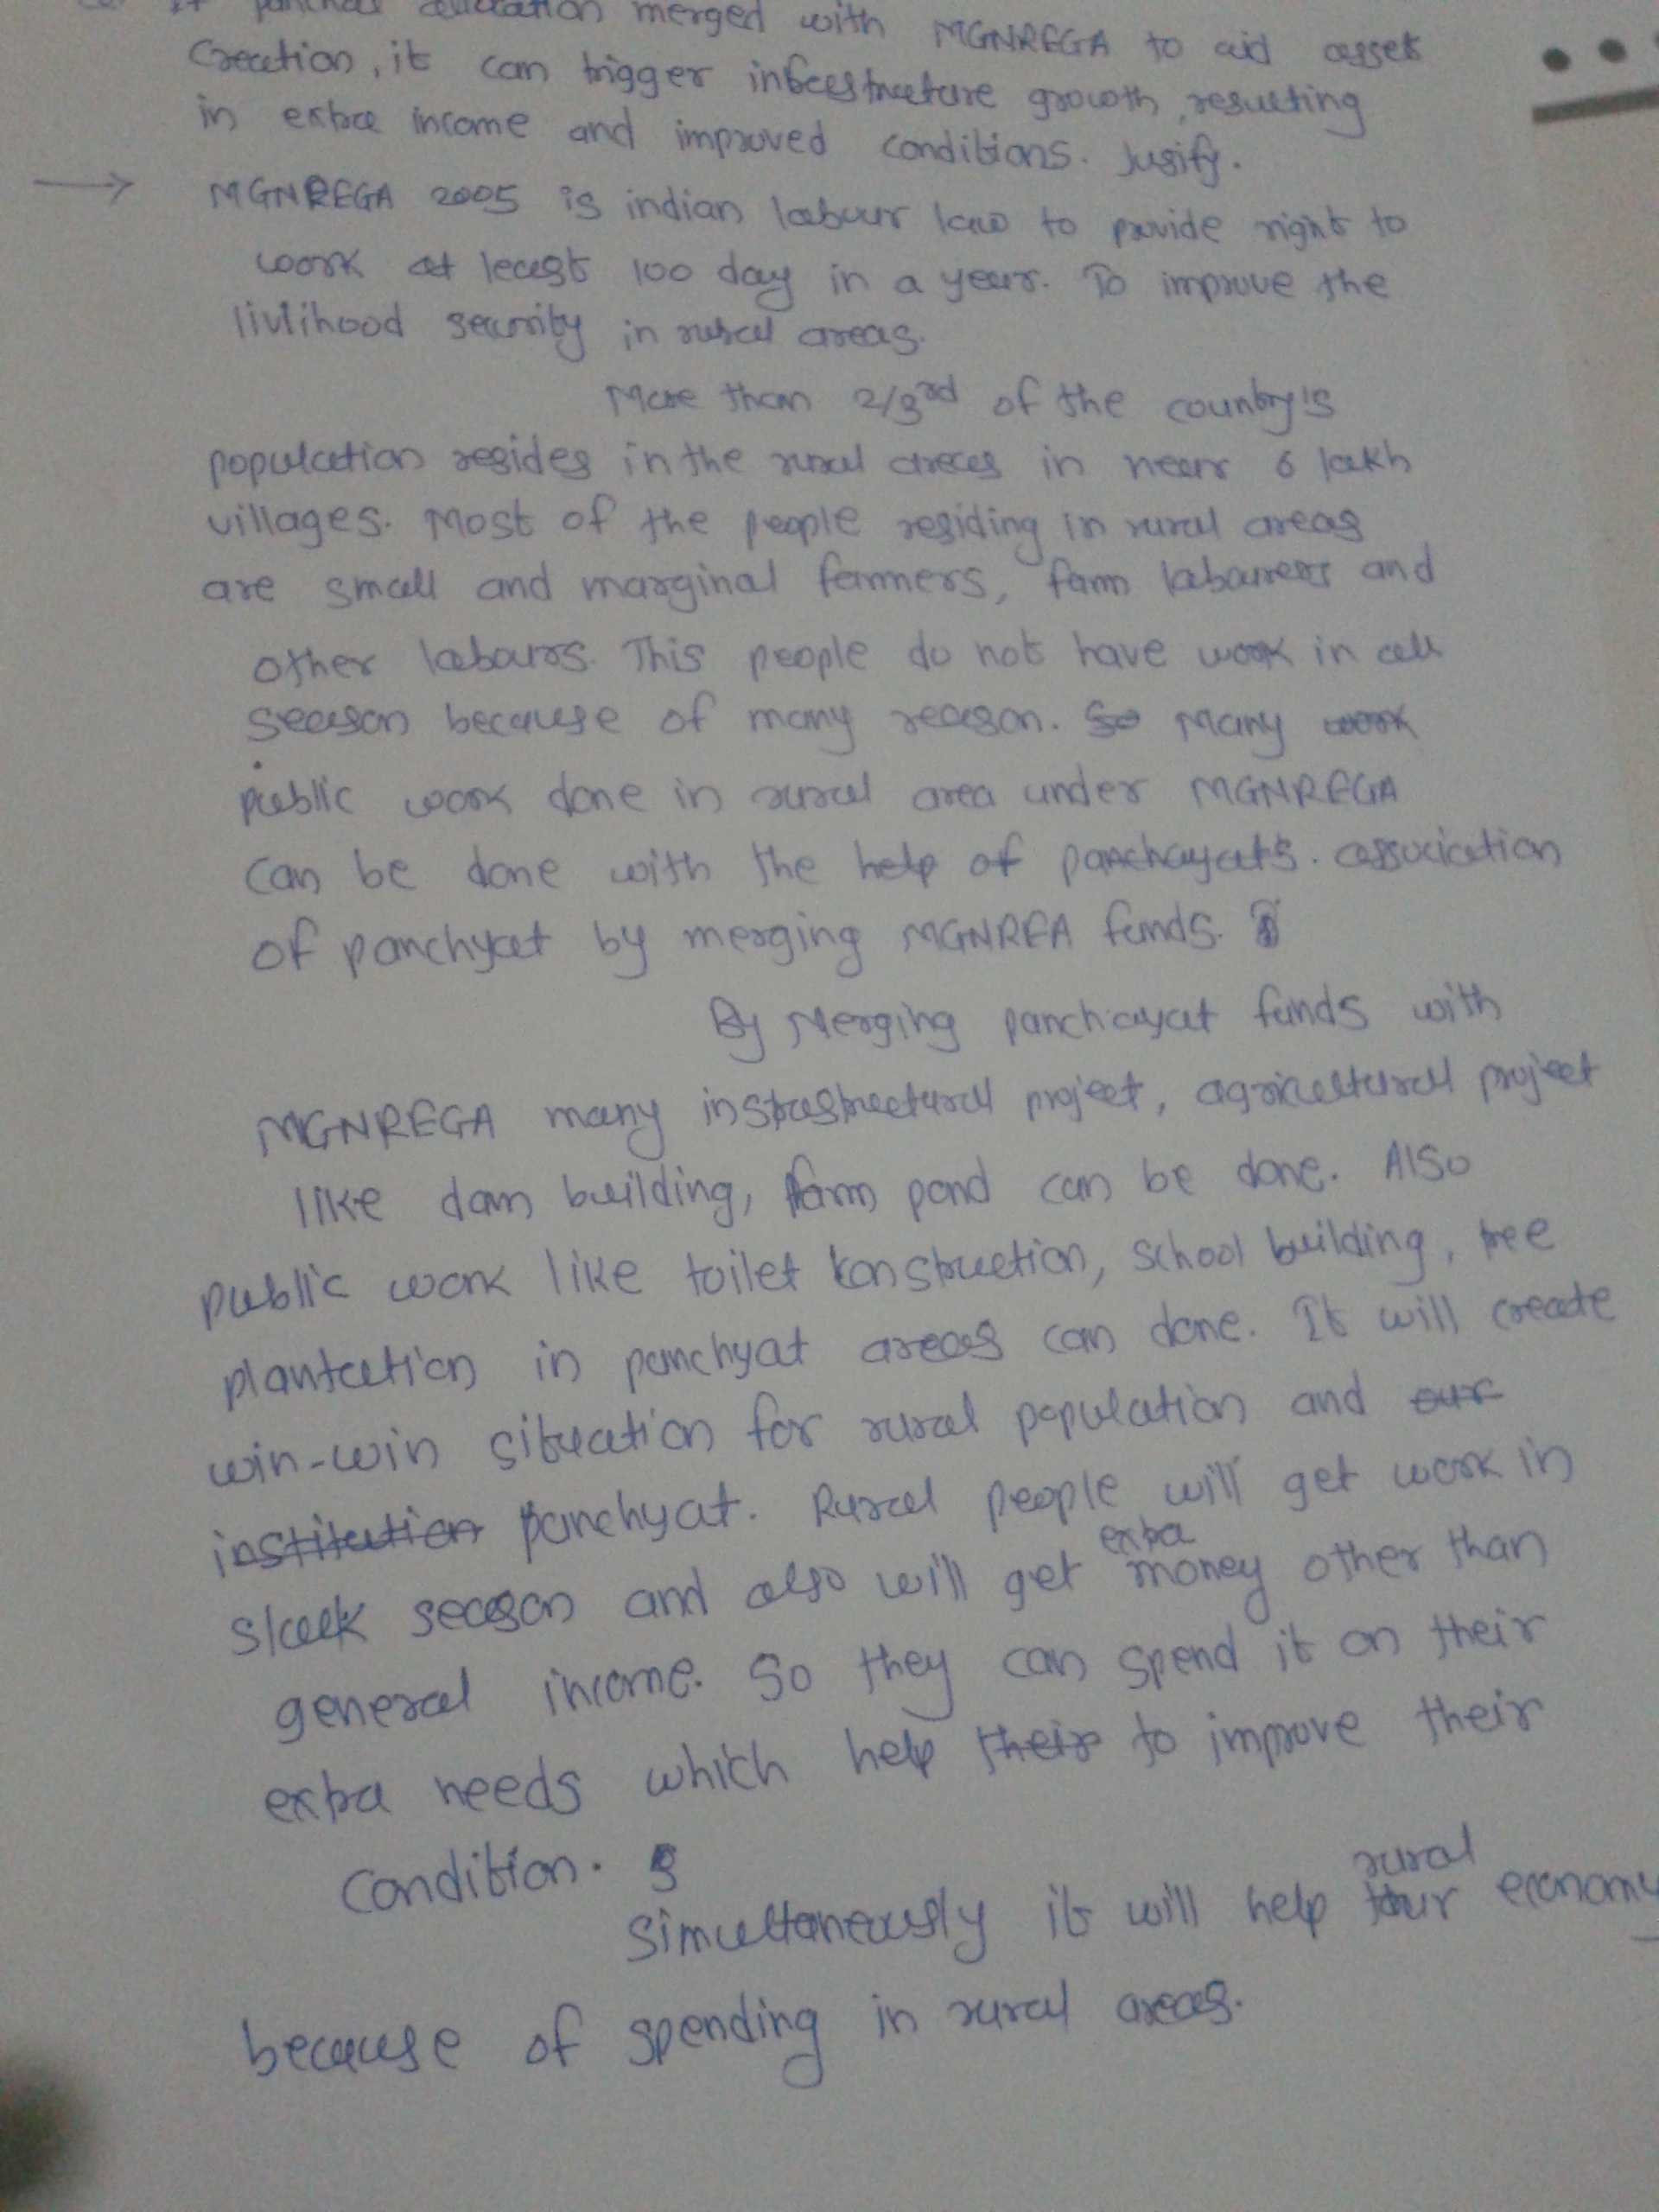 merged with MGNREGA to aid asset
Creation, it can trigger infrastructure growth, resulting
in extra income and improved conditions. Jusify.
→ MGNREGA 2005 is indian labour law to provide right to
work at least 100 day in a year. To improve the
livlihood security in rural areas.
More than 2/3rd of the country's
population resides in the rural areas in near 6 lakh
villages. Most of the people residing in rural areas
are small and marginal farmers, farm labourers and
other labours. This people do not have work in all
season because of many reason. So Many work
public work done in rural area under MGNREGA
can be done with the help of panchayats. association
of panchyat by merging MGNREA funds.
By Merging panchayat funds with
MGNREGA many instrastructural project, agricultural project
like dam building, farm pond can be done. Also
public work like toilet konstruction, school building, tree
plantation in panchyat areas can done. It will create
win-win situation for rural population and our
institution panchyat. Rural people will get work in
extra
slack season and also will get money other than
general income. So they can spend it on their
extra needs which help their to improve their
condition.
rural
Simultaneously it will help economy
because of spending in rural areas.